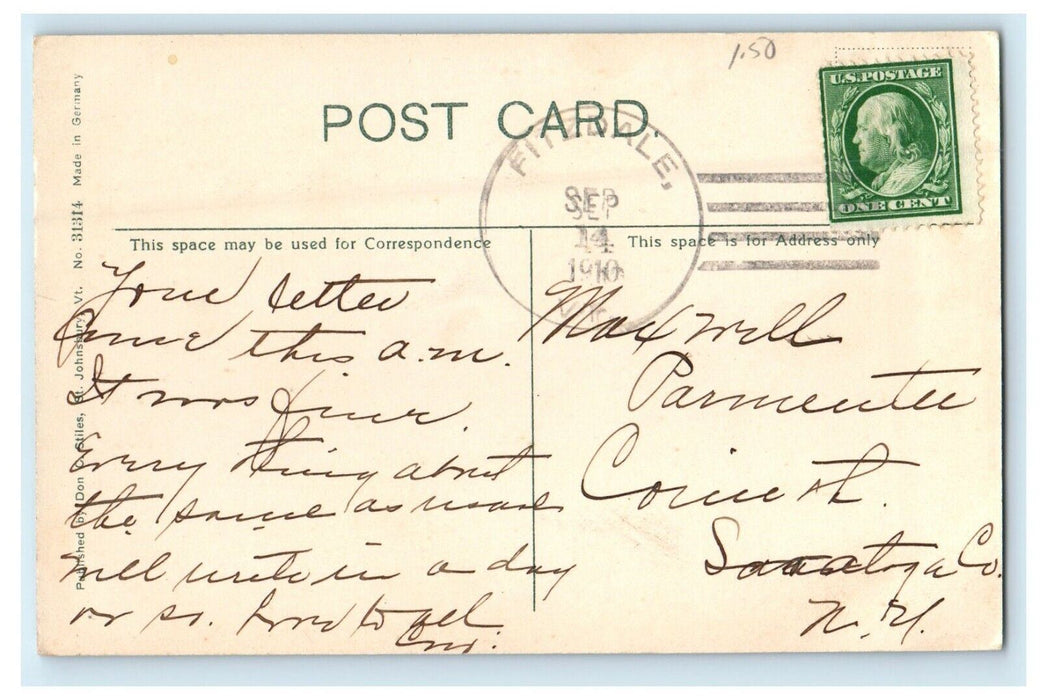 1.50
U.S. POSTAGE
ONE CENT
POST CARD.
FITZDALE,
SEP
14
1910
This space may be used for Correspondence
This space is for Address only
Published by Don C. Stiles, St. Johnsbury, Vt. No. 31314 Made in Germany
Your letter
came this a.m.
It was fine.
Every thing about
the same as usual
will write in a day
or so. Love to all
Maxwell
Parmenter
Corinth.
Saratoga Co.
N.Y.